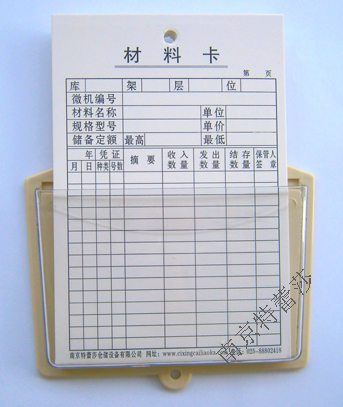 材料卡
第 页
库 架 层 位
微机编号
材料名称 单位
规格型号 单价
储备定额 最高 最低
年 凭证 摘要 收入数量 发出数量 结存数量 保管人签章
月 日 种类 号数
南京特蕾莎仓储设备有限公司 网址：www.cixingcailiaoka.
025-88802418
南京特蕾莎